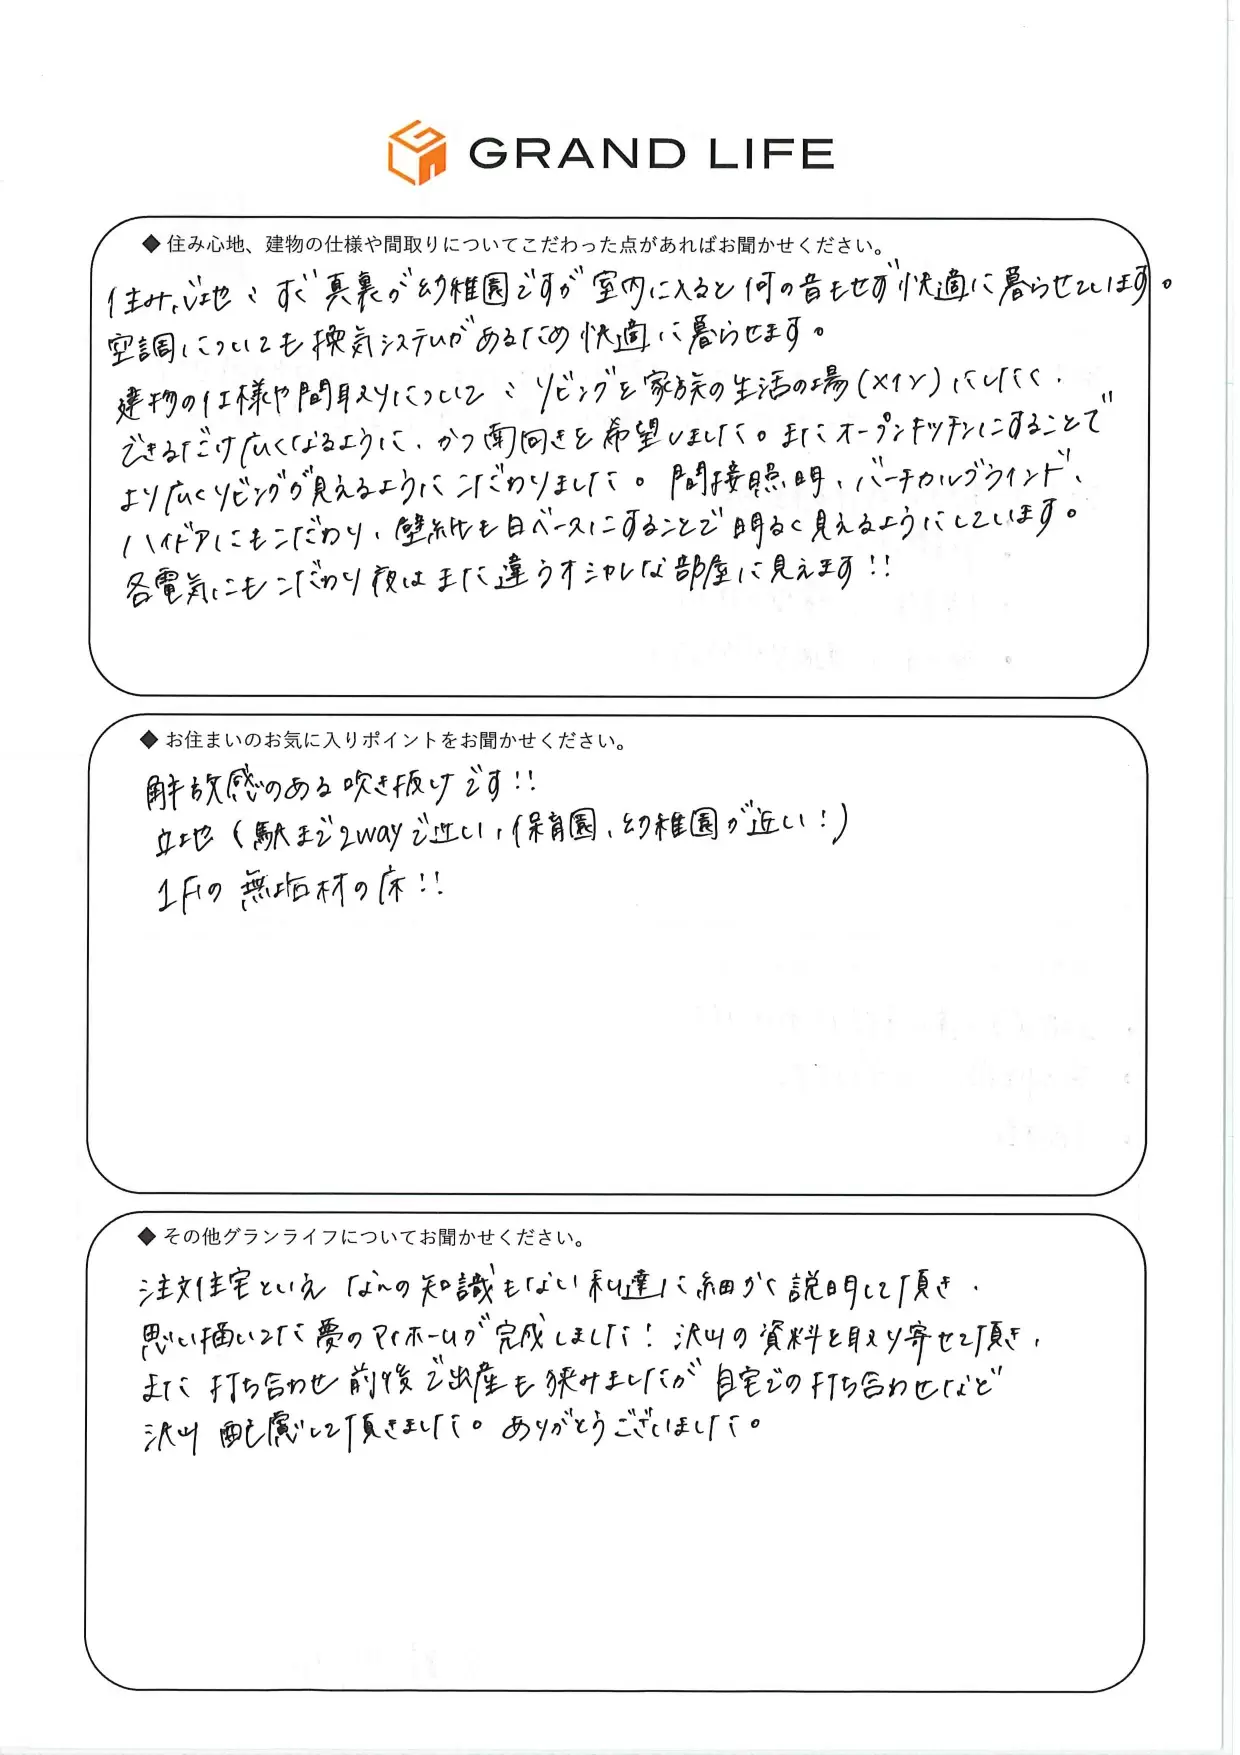 GRAND LIFE
◆ 住み心地、建物の仕様や間取りについてこだわった点があればお聞かせください。
住み心地:すぐ真裏が幼稚園ですが室内に入ると何の音もせず快適に暮らせています。
空調についても換気システムがあるため快適に暮らせます。
建物の仕様や間取りについて:リビングを家族の生活の場(メイン)にしたく、
できるだけ広くなるように、かつ南向きを希望しました。またオープンキッチンにすることで
より広くリビングが見えるようにこだわりました。間接照明、バーチカルブラインド、
ハイドアにもこだわり、壁紙も白ベースにすることで明るく見えるようにしています。
各電気にもこだわり夜はまた違うオシャレな部屋に見えます!!
◆ お住まいのお気に入りポイントをお聞かせください。
解放感のある吹き抜けです!!
立地(駅まで2wayで近い、保育園、幼稚園が近い!)
1Fの無垢材の床!!
◆ その他グランライフについてお聞かせください。
注文住宅といえ なんの知識もない私達に細かく説明して頂き、
思い描いてた夢のマイホームが完成しました!沢山の資料を取り寄せて頂き、
また 打ち合わせ前後で出産も狭みましたが自宅での打ち合わせなど
沢山 配慮して頂きました。ありがとうございました。